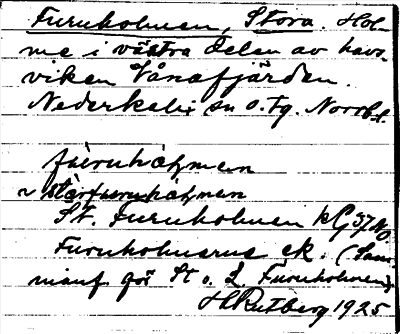 Furuholmen, Stora. Hol-
me i västra delen av havs-
viken Vånafjärden.
Nederkalix sn o. tg. Norrb. l.
furuhåłmen
~ stórfuruhåłmen
St. Furuholmen kG 37 NO
Furuholmarna ek. (Sam-
manf. för St o. L Furuholmen)
H Rutberg 1925